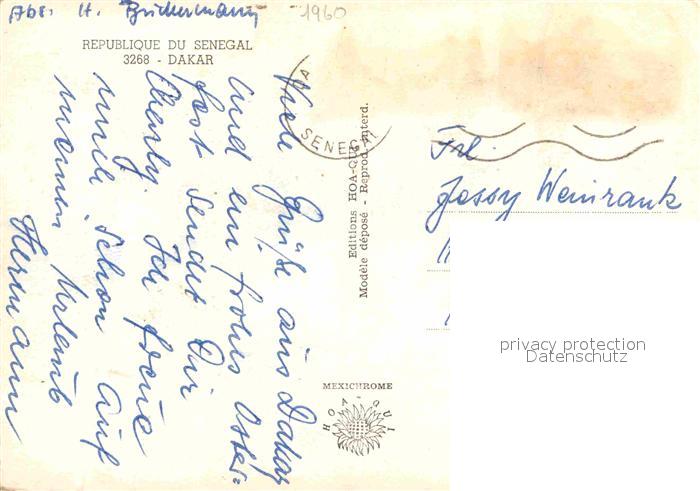 Abs. H. Brickermann
1960
REPUBLIQUE DU SENEGAL
3268 - DAKAR
Viele Grüße aus Dakar
und ein frohes Oster-
fest sendet Dir
Ich freue
mich schon auf
meinen Urlaub
Hermann
SENEGA
Editions HOA-QUI
Modèle déposé - Reprod. interd.
MEXICHROME
HOA-QUI
Frl.
Jossy Weinrank
privacy protection
Datenschutz